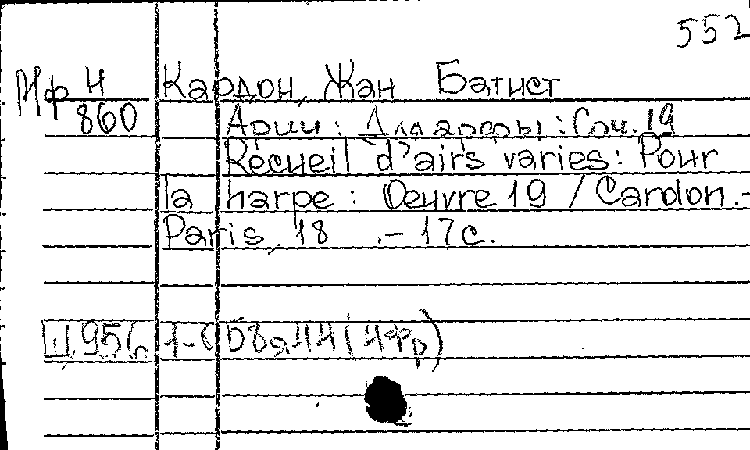 552
Мф Ч Кардон, Жан Батист
860 Арии: Для арфы: Соч. 19
Recueil d'airs varies: Pour
la harpe: Oeuvre 19 / Cardon.-
Paris, 18 .- 17с.